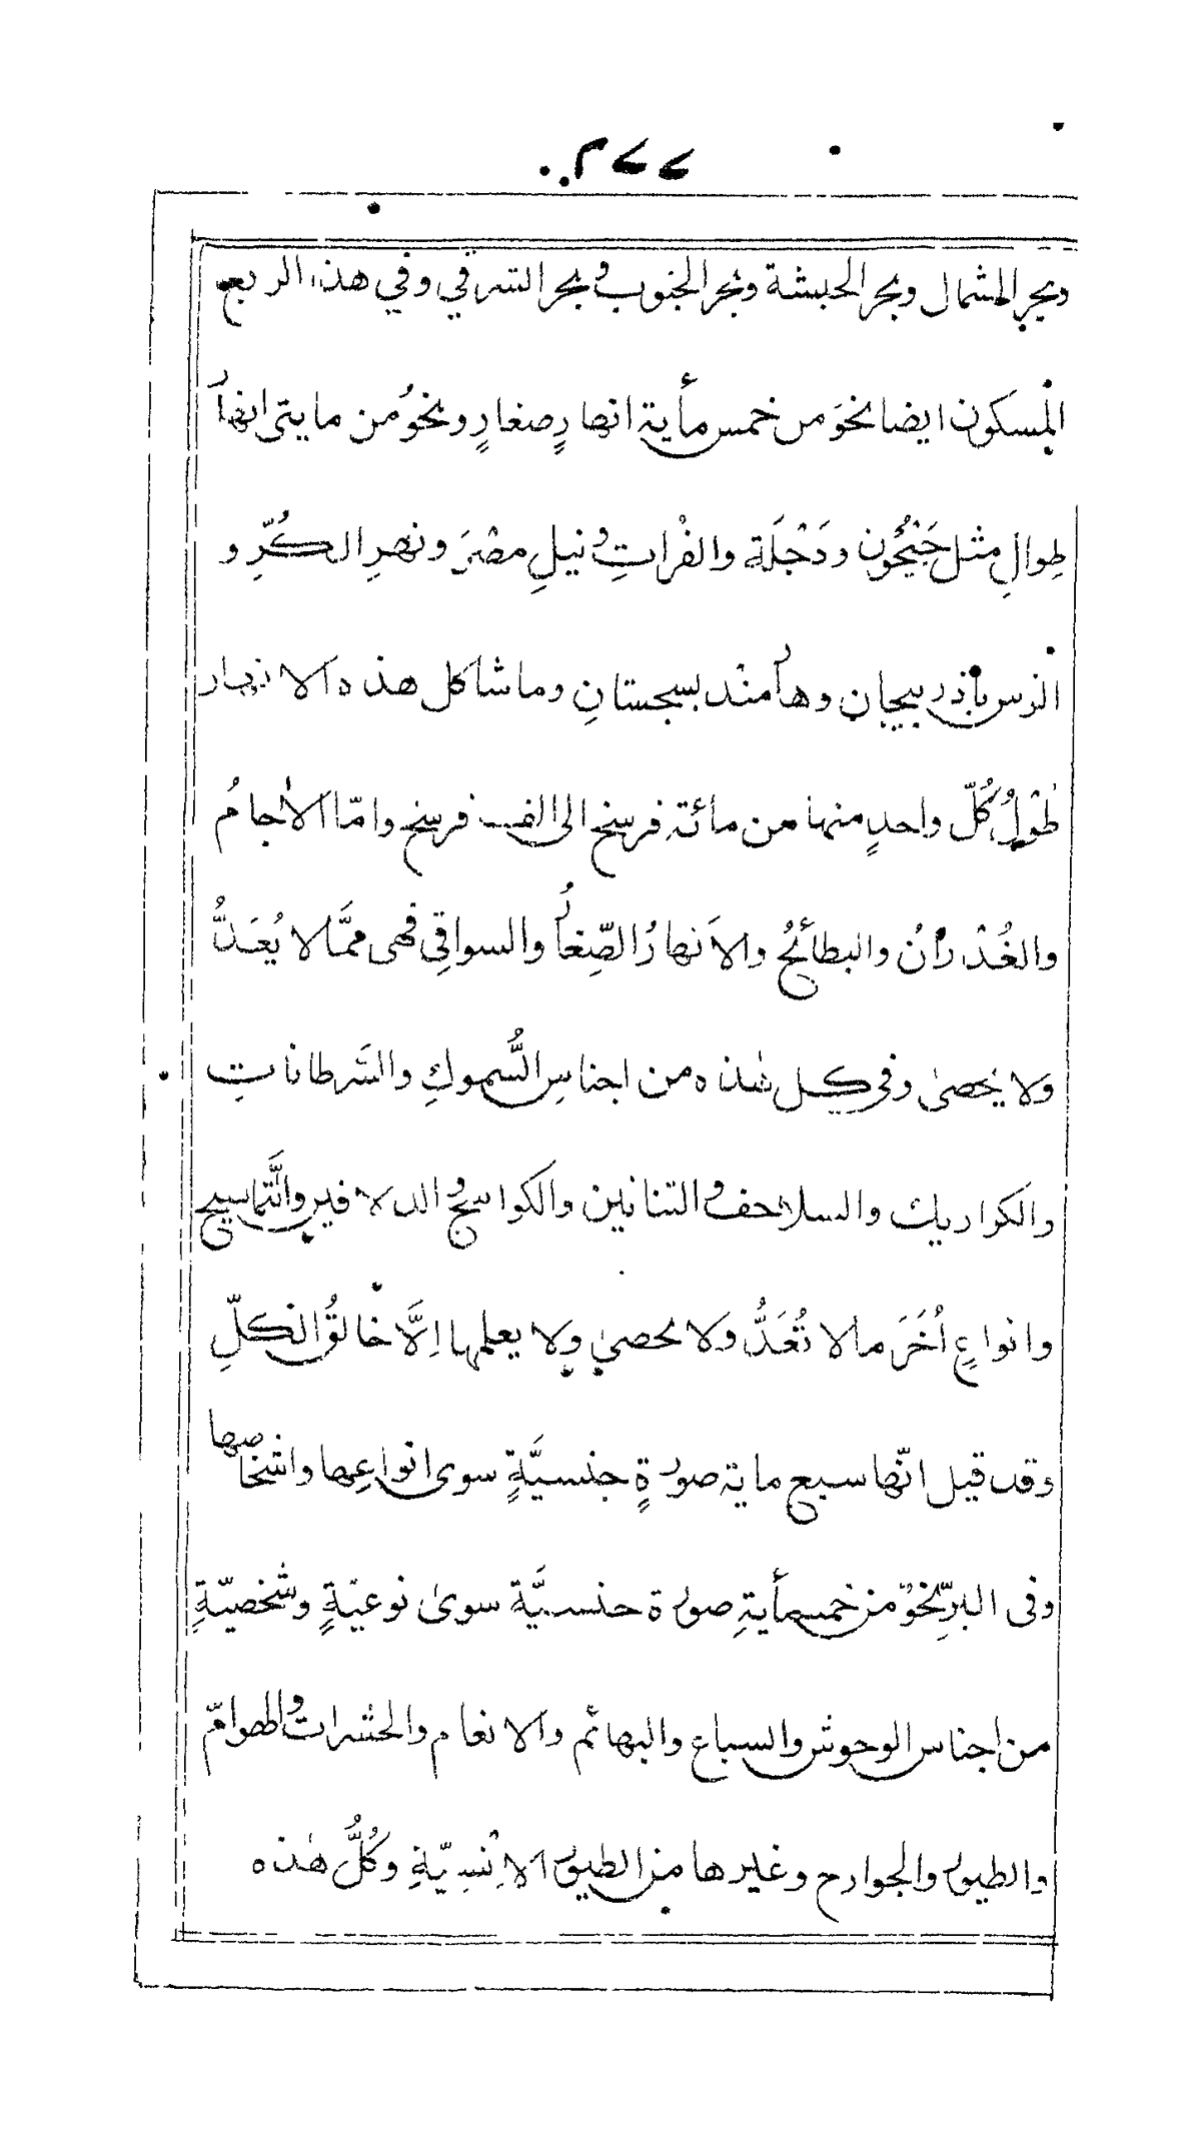 ٢٧٧
وبحر الشمال وبحر الحبشة وبحر الجنوب وبحر الشرقي وفي هذا الربع
المسكون ايضا نحوَ من خمس مأية انهارٍ صغارٍ ونحوُ من مايتى انهار
طِوالِ مثل جَيْحُون ودَجْلَة والفُراتِ ونيلِ مصْرَ ونهرِ الكُرِّ و
الرس بأذربيجان وهأمنْد بسجستانِ وما شاكل هذه الانهار
طُوْلُ كُلّ واحدٍ منها من مائةِ فرسخ الى الف فرسخ وامّا الأجامُ
والغُدْرانُ والبطائحُ والاَنهارُ الصِّغارُ والسواقِى فهى ممَّا لا يُعَدُّ
ولا يُحصىٰ وفى كل هٰذه من اجناسِ السُّموكِ والسَّرطاناتِ
والكواريك والسلاحف والتنانين والكواسج والدلافين والتَّماسيح
وانواعٍ اُخَرَ مالا تُعَدُّ ولا يحصىٰ ولا يعلمها اِلَّا خالقُ الكلِّ
وقد قيل انّها سبع ماية صورةٍ جنسيَّةٍ سوى انواعِها واشخاصها
وفى البرِّ نحوٌ من خمسمأيةِ صورة جنسيَّة سوىٰ نوعيّةٍ وشخصيّةٍ
من اجناس الوحوش والسباع والبهائم والانعام والحشرات والهوامّ
والطيور والجوارح وغيرها من الطيور الاِنْسِيّةِ وكُلُّ هٰذه